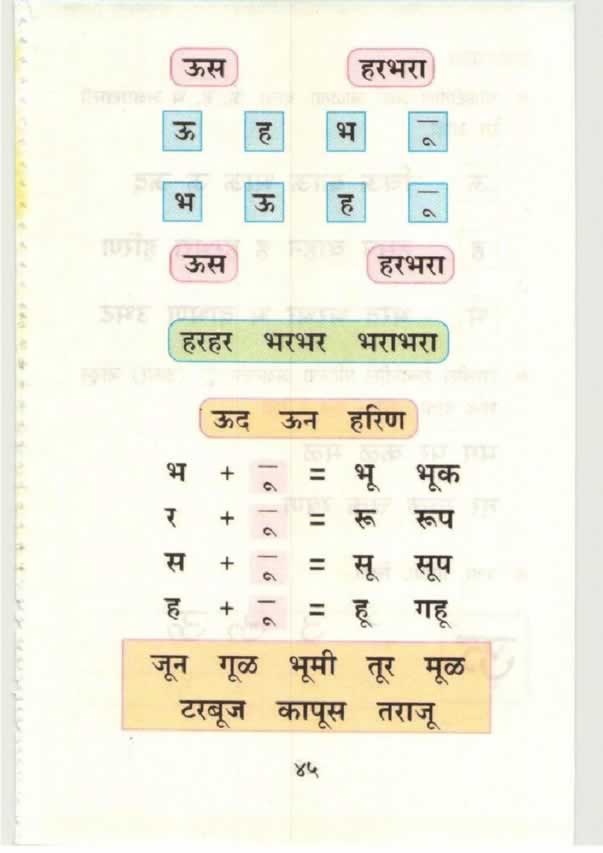 ऊस हरभरा
ऊ ह भ ू
भ ऊ ह ू
ऊस हरभरा
हरहर भरभर भराभरा
ऊद ऊन हरिण
भ + ू = भू भूक
र + ू = रू रूप
स + ू = सू सूप
ह + ू = हू गहू
जून गूळ भूमी तूर मूळ
टरबूज कापूस तराजू
४५